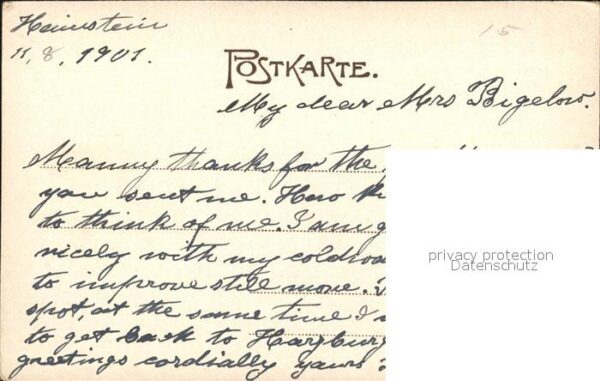 Heinstein
11, 8, 1901.
15
POSTKARTE.
My dear Mrs Bigelow.
Manny thanks for the
you sent me. How
to think of me. I am
nicely with my
to improve still more.
spot, at the same time I
to get back to Harzburg
greetings cordially yours
privacy protection
Datenschutz